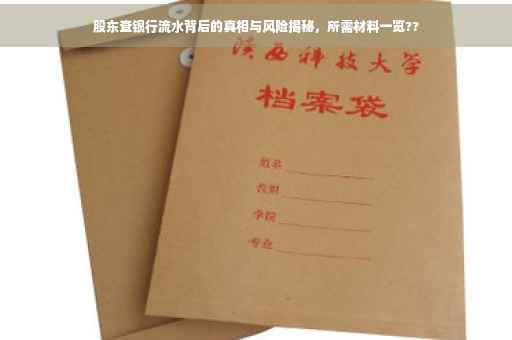 股东查银行流水背后的真相与风险揭秘，所需材料一览??
陕西科技大学
档案袋
姓名
学院
专业